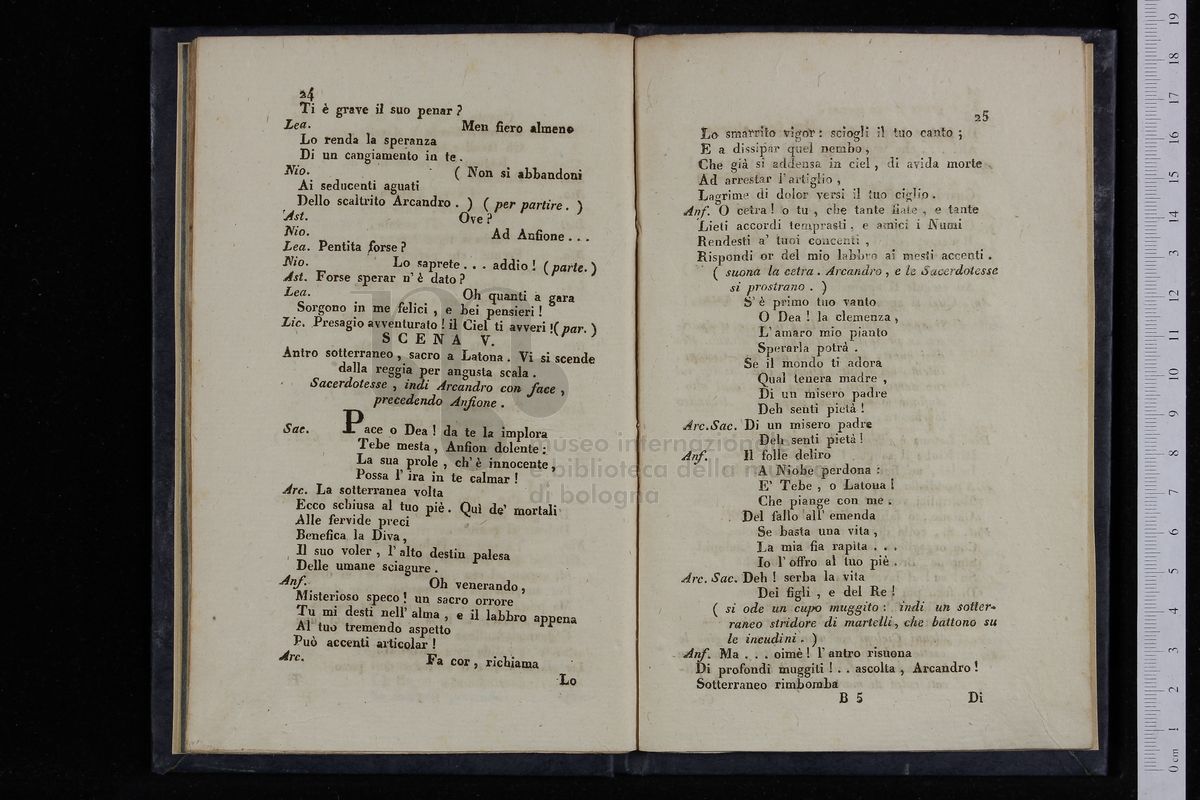 24
Ti è grave il suo penar ?
Lea. Men fiero almeno
Lo renda la speranza
Di un cangiamento in te .
Nio. ( Non si abbandoni
Ai seducenti aguati
Dello scaltrito Arcandro . ) ( per partire . )
Ast. Ove ?
Nio. Ad Anfione . . .
Lea. Pentita forse ?
Nio. Lo saprete . . . addio ! ( parte. )
Ast. Forse sperar n' è dato ?
Lea. Oh quanti a gara
Sorgono in me felici , e bei pensieri !
Lic. Presagio avventurato ! il Ciel ti avveri !( par. )
SCENA V.
Antro sotterraneo , sacro a Latona . Vi si scende
dalla reggia per angusta scala .
Sacerdotesse , indi Arcandro con face ,
precedendo Anfione .
Sac. Pace o Dea ! da te la implora
Tebe mesta , Anfion dolente :
La sua prole , ch' è innocente ,
Possa l' ira in te calmar !
Arc. La sotterranea volta
Ecco schiusa al tuo piè . Quì de' mortali
Alle fervide preci
Benefica la Diva ,
Il suo voler , l' alto destin palesa
Delle umane sciagure .
Anf. Oh venerando ,
Misterioso speco ! un sacro orrore
Tu mi desti nell' alma , e il labbro appena
Al tuo tremendo aspetto
Può accenti articolar !
Arc. Fa cor , richiama
Lo
25
Lo smarrito vigor : sciogli il tuo canto ;
E a dissipar quel nembo ,
Che già si addensa in ciel , di avida morte
Ad arrestar l' artiglio ,
Lagrime di dolor versi il tuo ciglio .
Anf. O cetra ! o tu , che tante fiate , e tante
Lieti accordi temprasti , e amici i Numi
Rendesti a' tuoi concenti ,
Rispondi or del mio labbro ai mesti accenti .
( suona la cetra . Arcandro , e le Sacerdotesse
si prostrano . )
S' è primo tuo vanto
O Dea ! la clemenza ,
L' amaro mio pianto
Sperarla potrà .
Se il mondo ti adora
Qual tenera madre ,
Di un misero padre
Deh senti pietà !
Arc.Sac. Di un misero padre
Deh senti pietà !
Anf. Il folle deliro
A Niobe perdona :
E' Tebe , o Latona !
Che piange con me .
Del fallo all' emenda
Se basta una vita ,
La mia fia rapita . . .
Io l' offro al tuo piè .
Arc. Sac. Deh ! serba la vita
Dei figli , e del Re !
( si ode un cupo muggito : indi un sotter-
raneo stridore di martelli , che battono su
le incudini . )
Anf. Ma . . . oimè ! l' antro risuona
Di profondi muggiti ! . . ascolta , Arcandro !
Sotterraneo rimbomba
B 5 Di
museo internazionale
e biblioteca della musica
di bologna
0 cm 1 2 3 4 5 6 7 8 9 10 11 12 13 14 15 16 17 18 19